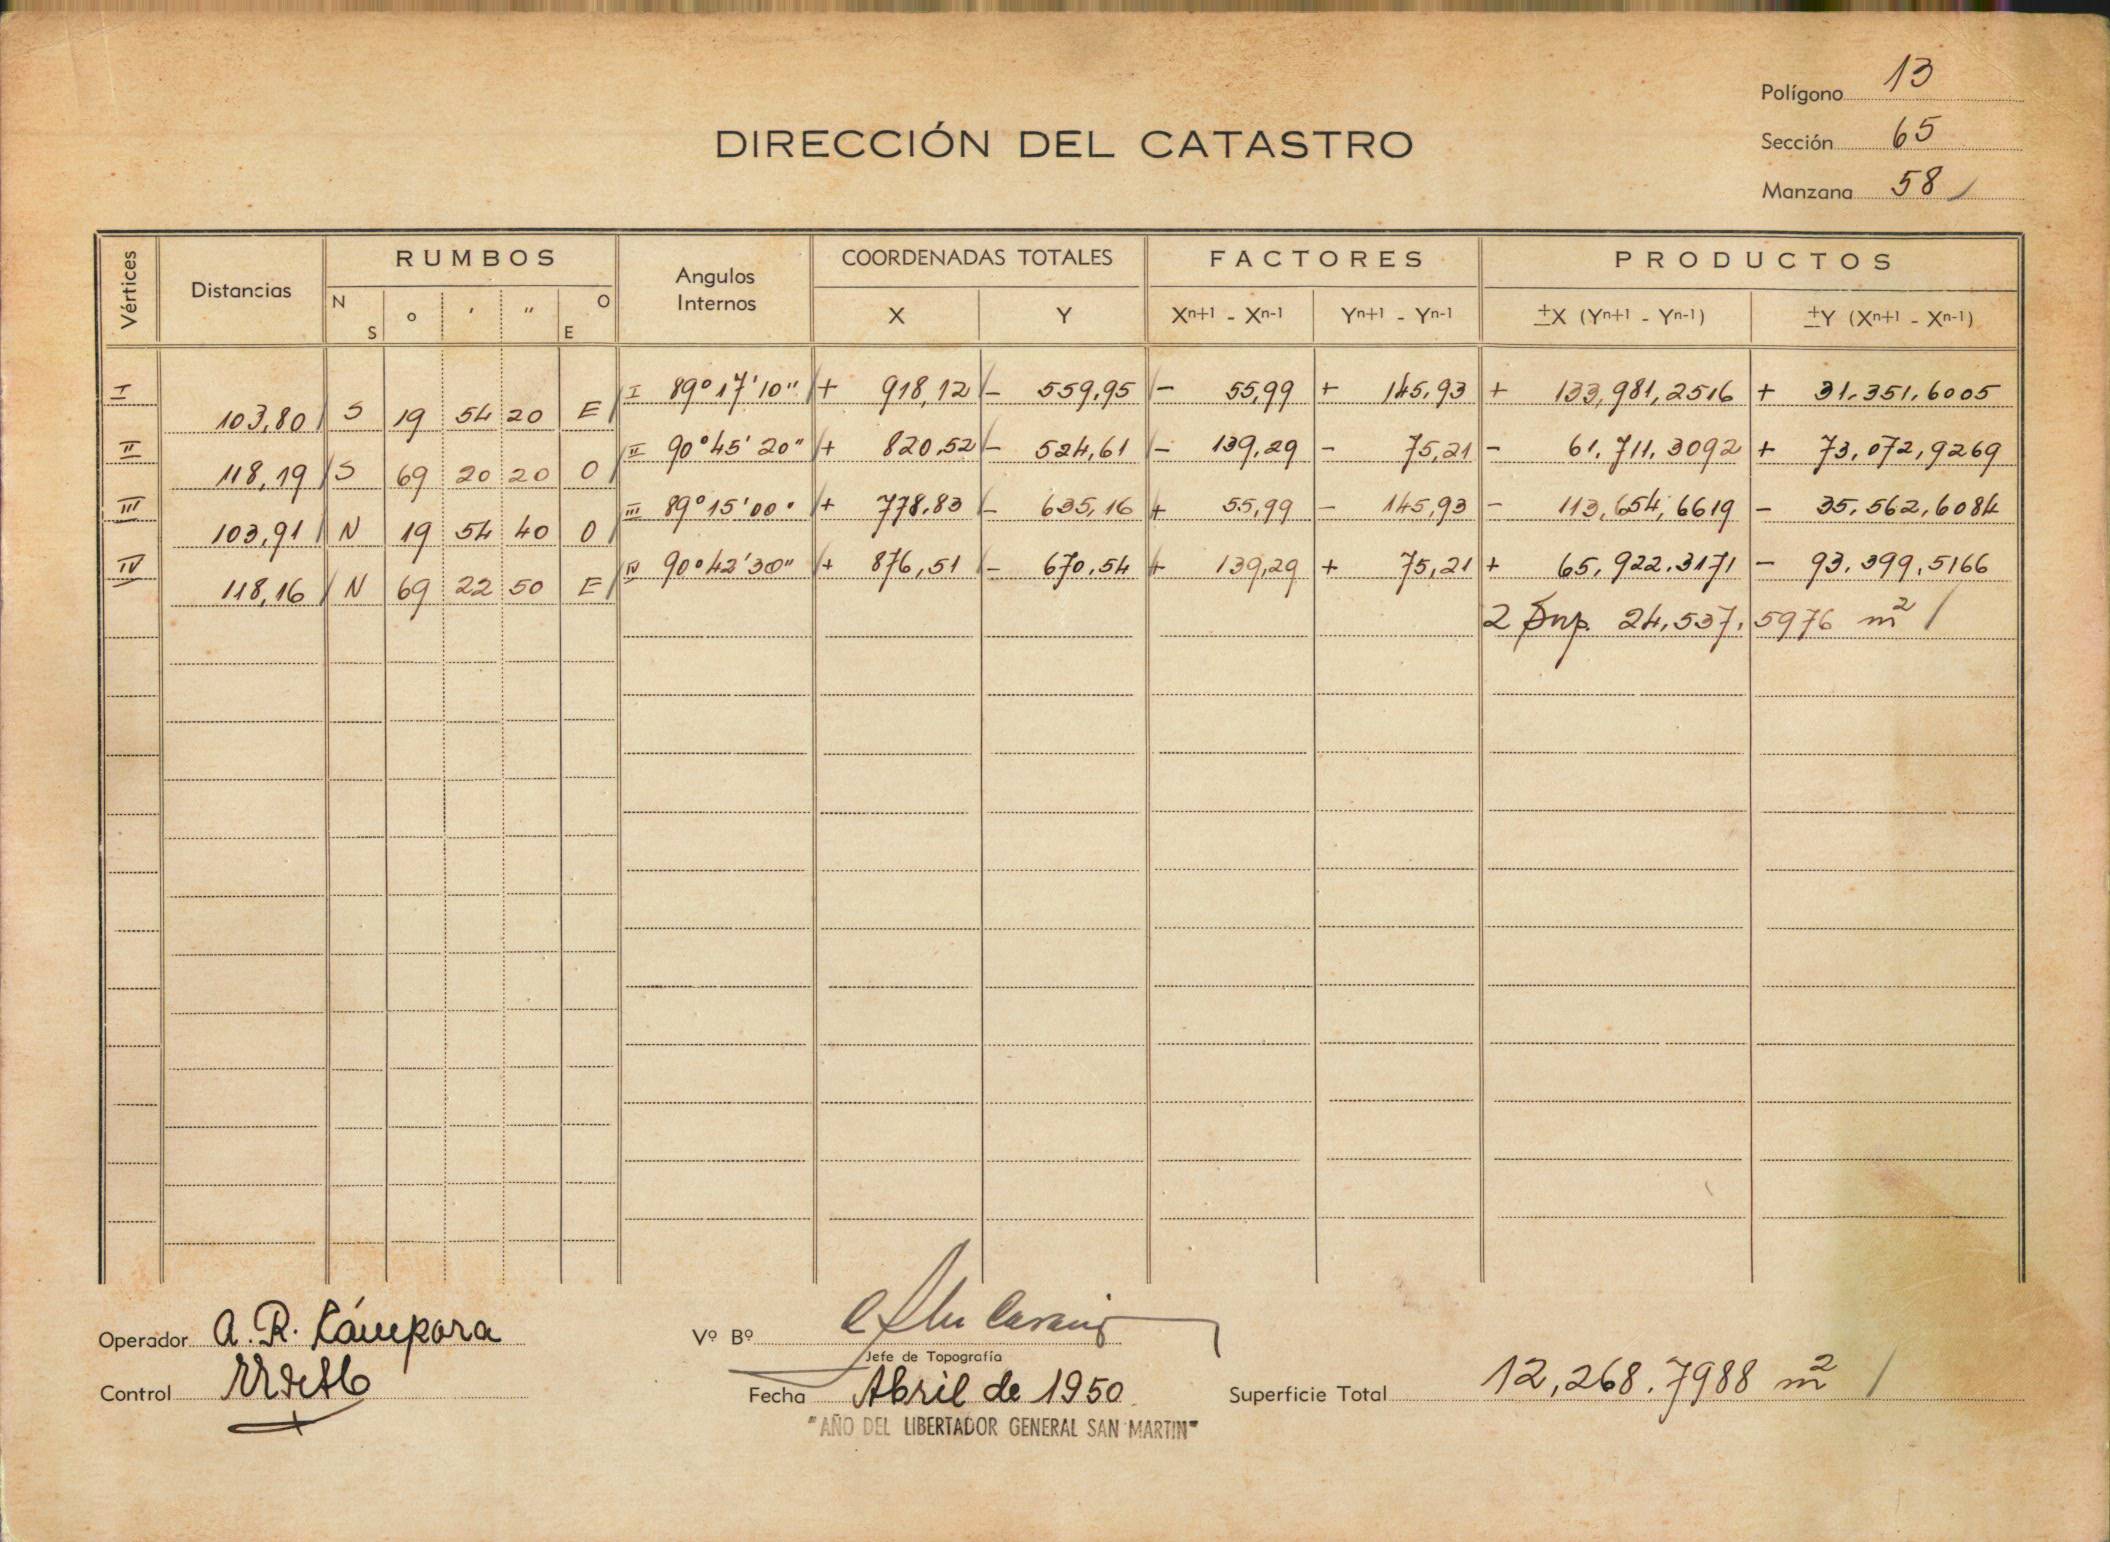 Polígono 13
DIRECCIÓN DEL CATASTRO
Sección 65
Manzana 58 /
Vértices Distancias RUMBOS Angulos Internos COORDENADAS TOTALES FACTORES PRODUCTOS
N S o ' " O E X Y Xn+1 - Xn-1 Yn+1 - Yn-1 ±X (Yn+1 - Yn-1) ±Y (Xn+1 - Xn-1)
I I 89° 17' 10" + 918,12 - 559,95 - 55,99 + 145,93 + 133,981,2516 + 31.351.6005
103,80 S 19 54 20 E
II II 90° 45' 20" + 820,52 - 524,61 - 139,29 - 75,21 - 61.711.3092 + 73,072,9269
118,19 S 69 20 20 O
III III 89° 15' 00" + 778,83 - 635,16 + 55,99 - 145,93 - 113,654,6619 - 35.562,6084
103,91 N 19 54 40 O
IV IV 90° 42' 30" + 876,51 - 670,54 + 139,29 + 75,21 + 65,922.3171 - 93.399,5166
118,16 N 69 22 50 E
2 Sup. 24,537,5976 m² /
Operador A. R. Cámpora Vº Bº
Jefe de Topografía
Control Fecha Abril de 1950 Superficie Total 12,268.7988 m² /
"AÑO DEL LIBERTADOR GENERAL SAN MARTIN"